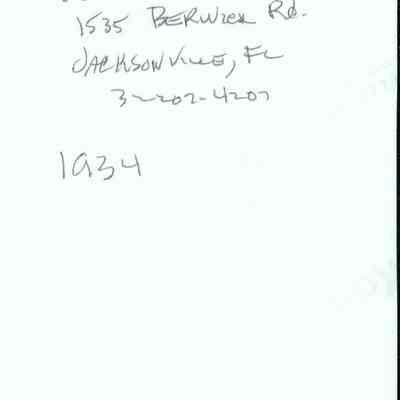 1535 BERWICK Rd.
JACKSONVILLE, FL
32207-4207
1934